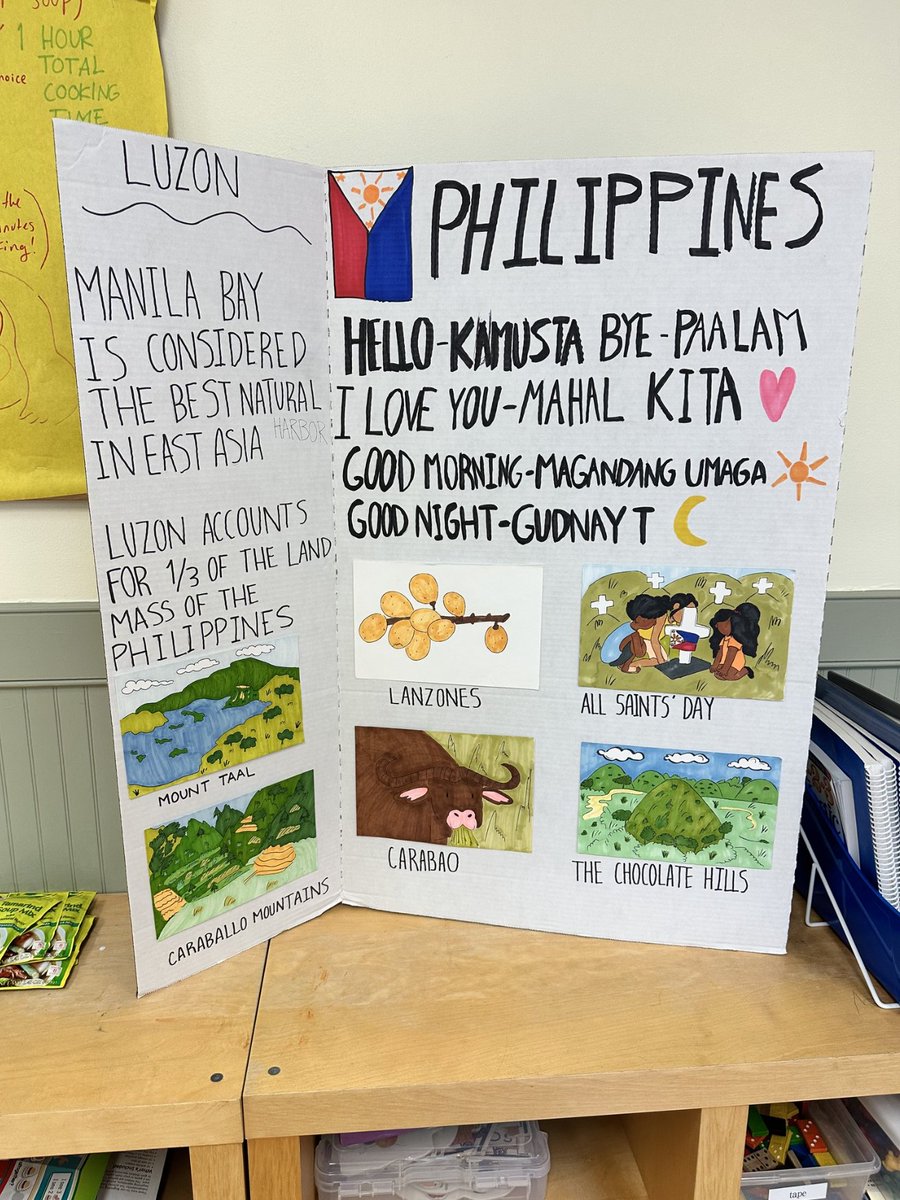 SOUP)
1 HOUR
TOTAL
COOKING
TIME
the
LUZON
MANILA BAY
IS CONSIDERED
THE BEST NATURAL
HARBOR
IN EAST ASIA
LUZON ACCOUNTS
FOR 1/3 OF THE LAND
MASS OF THE
PHILIPPINES
MOUNT TAAL
CARABALLO MOUNTAINS
PHILIPPINES
HELLO-KAMUSTA BYE-PAALAM
I LOVE YOU-MAHAL KITA
GOOD MORNING-MAGANDANG UMAGA
GOOD NIGHT-GUDNAYT
LANZONES
ALL SAINTS' DAY
CARABAO
THE CHOCOLATE HILLS
Tamarind
Soup Mix
tape